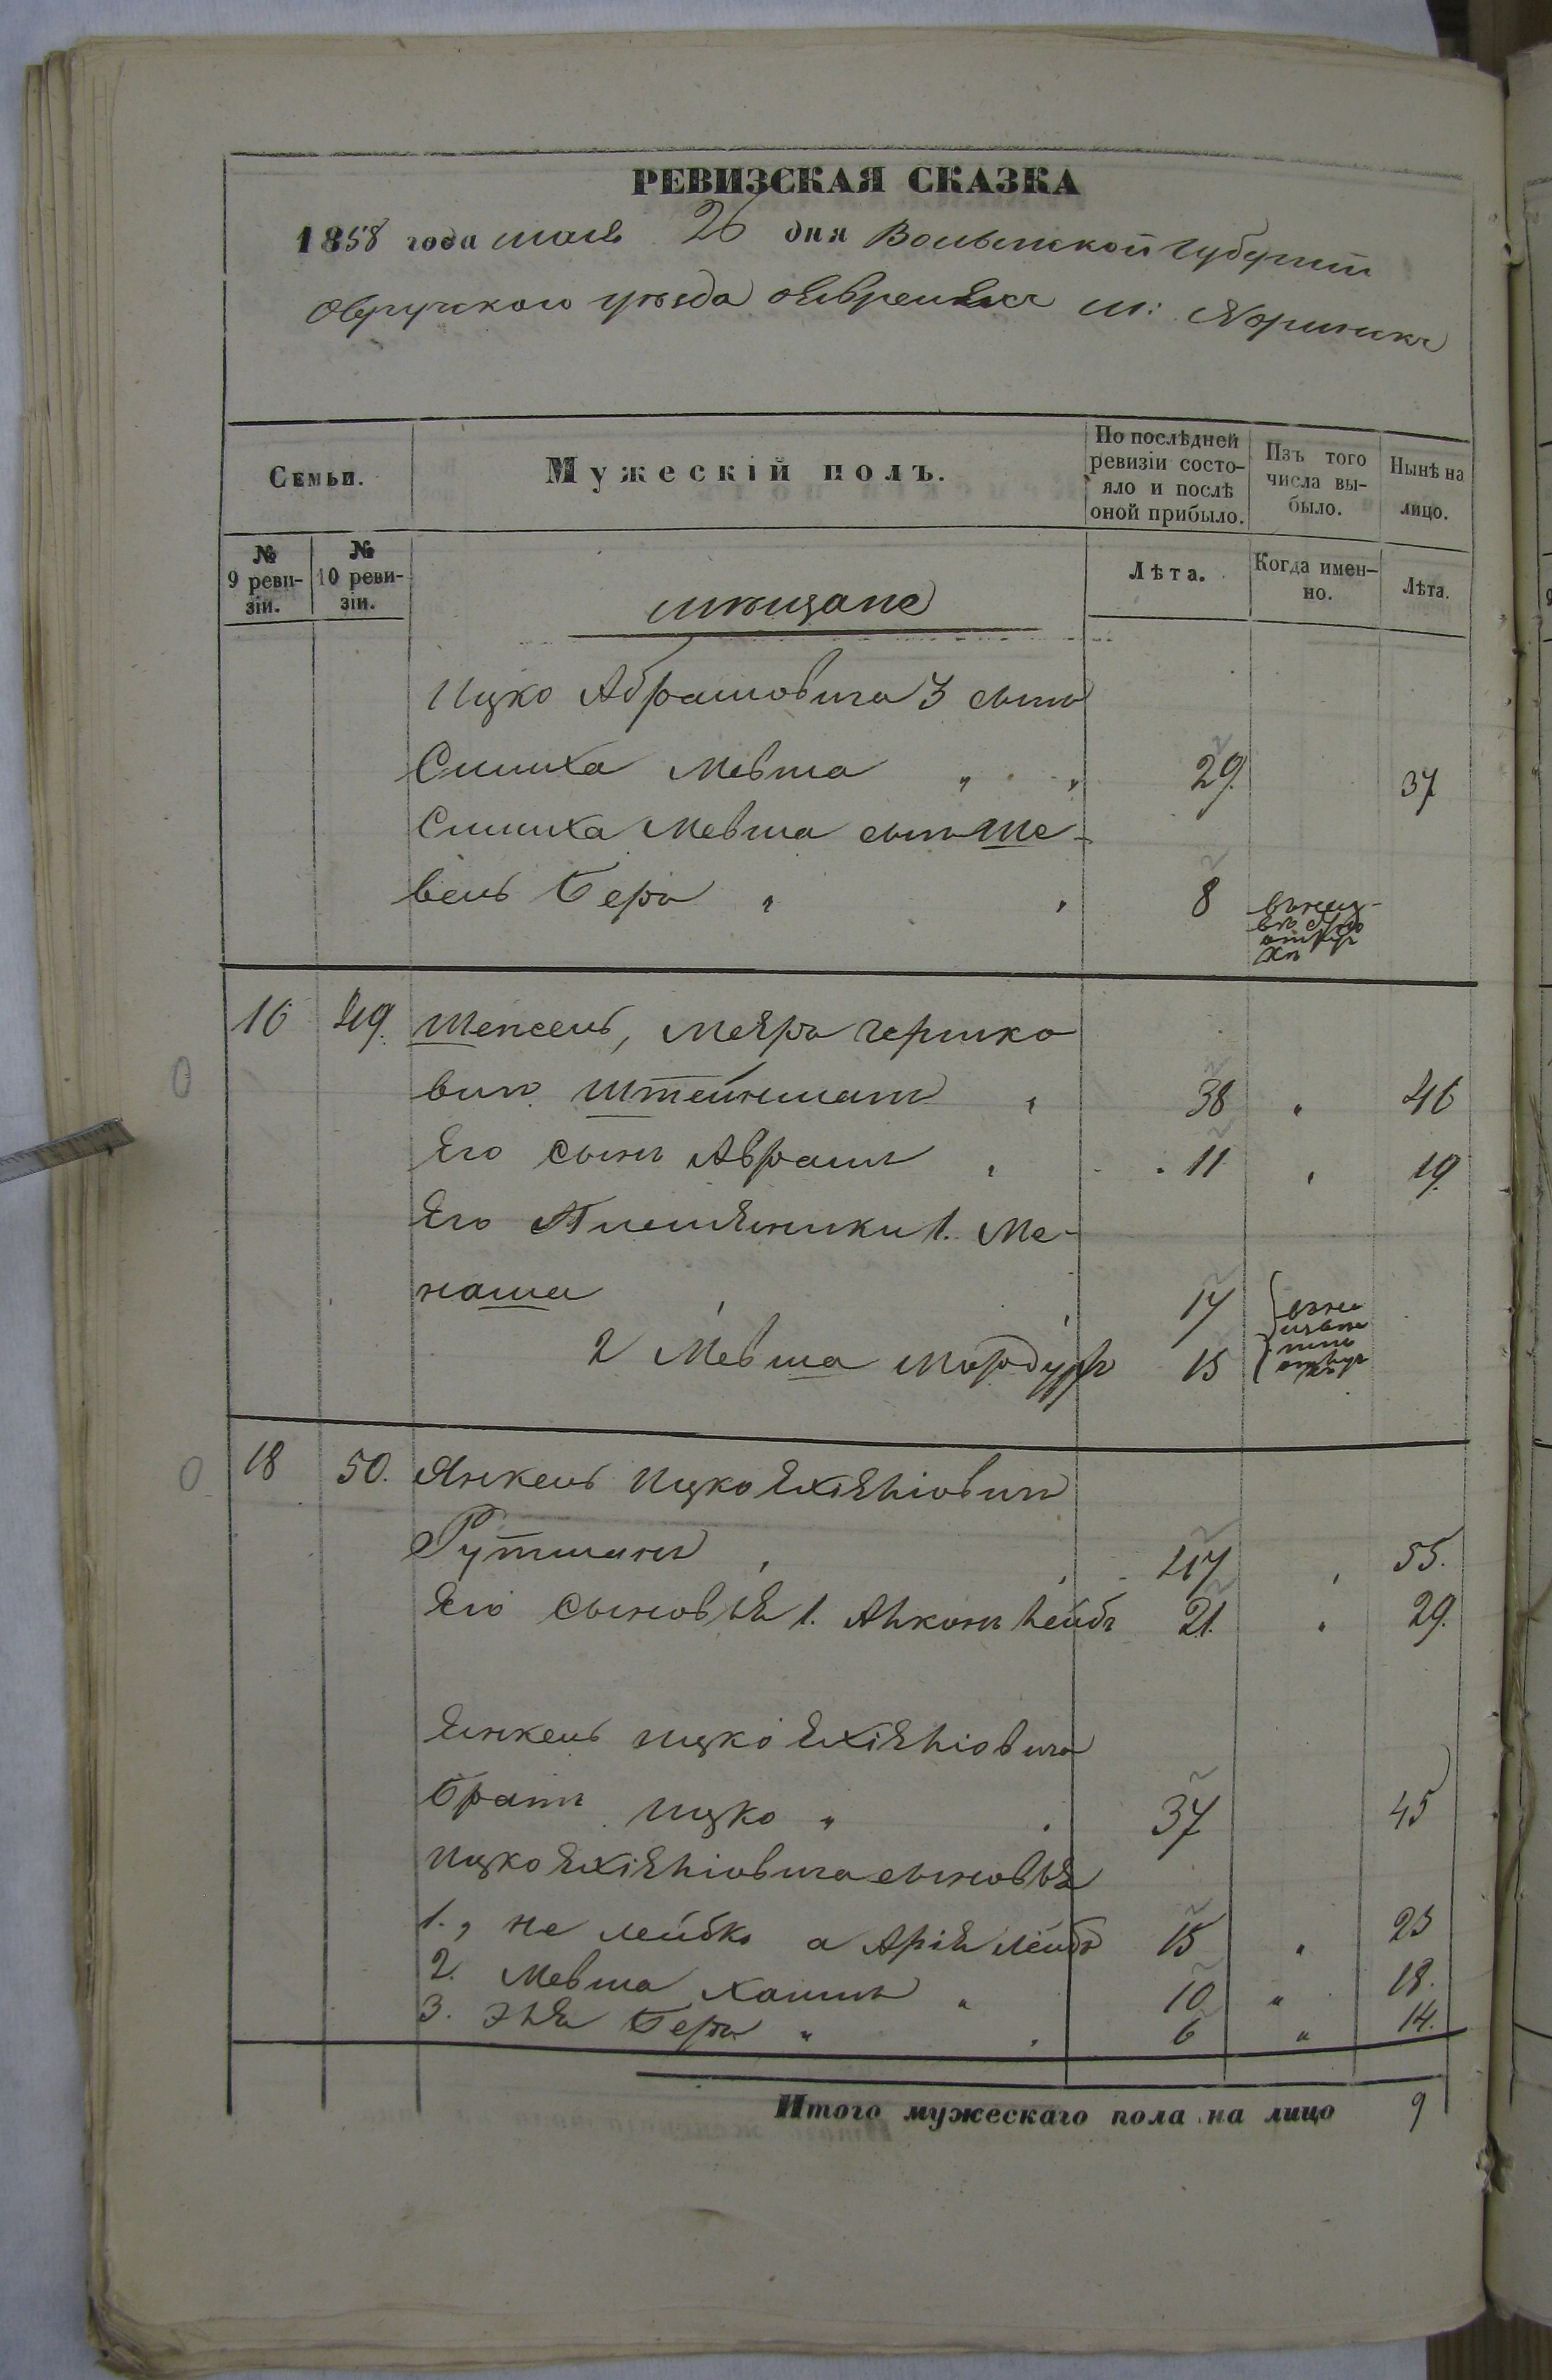 РЕВИЗСКАЯ СКАЗКА
1858 года мая 26 дня Волынской губернии
Овручского уезда о Евреяхъ м: Норинскъ
Семьи.
Мужескій полъ.
По послѣдней ревизіи состояло и послѣ оной прибыло.
Изъ того числа выбыло.
Нынѣ на лицо.
№ 9 ревизіи.
№ 10 ревизіи.
Лѣта.
Когда именно.
Лѣта.
мѣщане
Ицко Абрамовича 3 сынъ
Симха Мевша " " 29. 37
Симха Мевша сынъ Ше-
вель Беръ " " 8
16 49. Шепсель, Меяръ Гершко
вичъ Штейнманъ " 38 " 46
Его сынъ Авраам " 11 " 19
Его Племянники 1. Ме-
наша " " 17
2 Мевша Мордухъ 15
18 50. Янкель Ицко Ехіеліовичъ
Рутманъ " " 47 " 55.
Его сыновья 1. Анконъ Лейбъ 21. " 29.
Янкель Ицко Ехіеліовича
братъ Ицко " " 37 45
Ицко Ехіеліовича сыновья
1., не Лейбко а Арія Лейбъ 15 " 23
2. Мевша Хаимъ " 10 " 18.
3. Эля Беръ " " 6 " 14.
Итого мужескаго пола на лицо 9